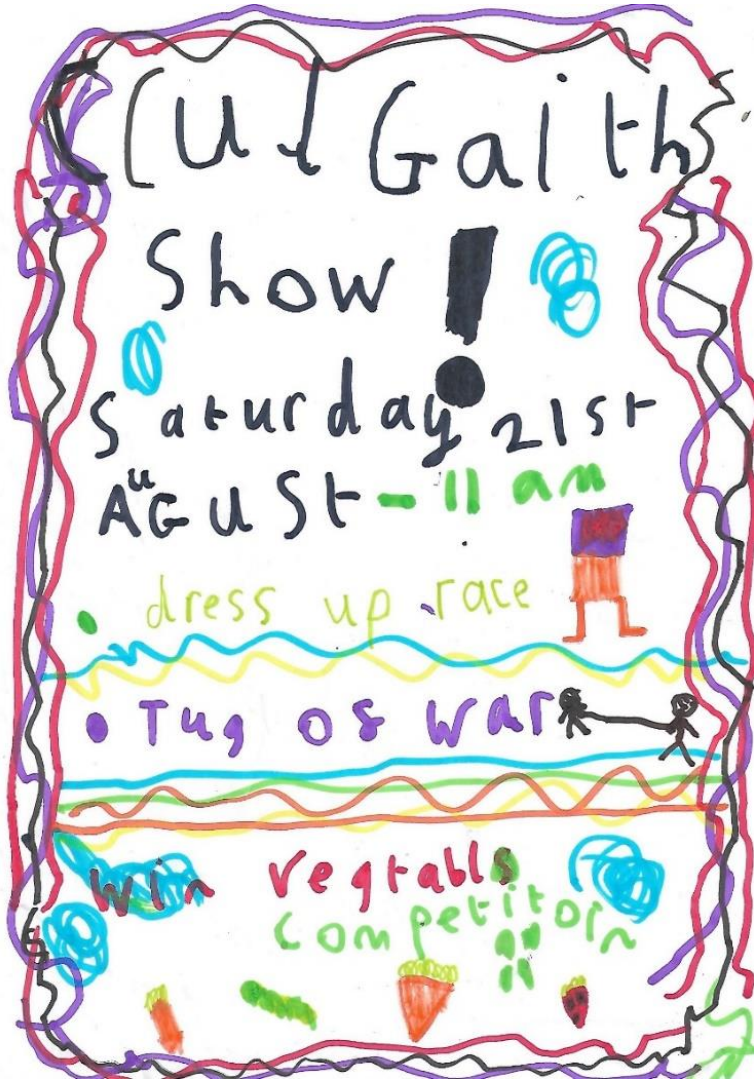 CulGaith
Show!
Saturday 21st
AuGUSt - 11 am
• dress up race
• Tug of war
win vegtabls
competitoin